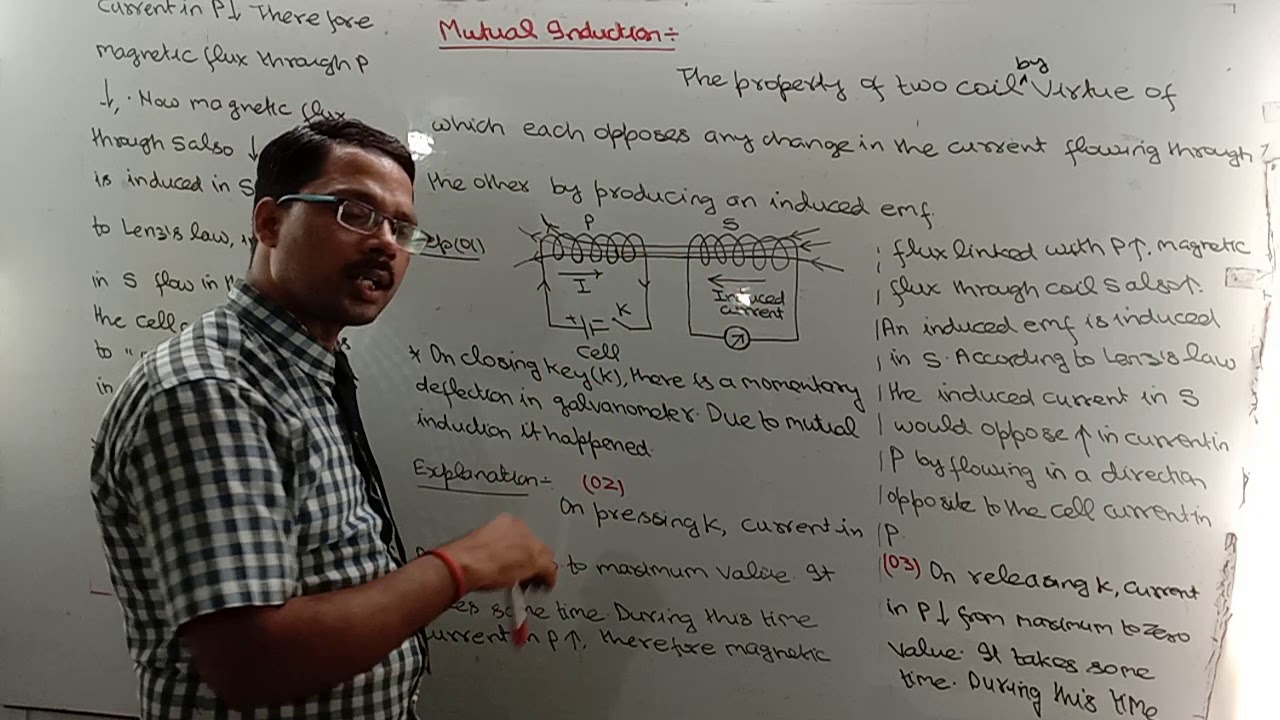 Mutual Induction÷
The property of two coil by virtue of
which each opposes any change in the current flowing through
the other by producing an induced emf.
Exp(01)
P
S
I
Induced
current
+
K
Cell
* On closing key(K), there is a momentary
deflection in galvanometer. Due to mutual
induction it happened.
Explanation÷ (02)
On pressing K, current in
to maximum value. It
some time. During this time
current in P↑, therefore magnetic
flux linked with P↑. magnetic
flux through coil S also↑.
An induced emf is induced
in S. According to Lenz's law
the induced current in S
would oppose ↑ in current in
P by flowing in a direction
opposite to the cell current in
P.
(03) On releasing K, current
in P↓ from maximum to zero
value. It takes some
time. During this time
Current in P↓ Therefore
magnetic flux through P
↓, Now magnetic flux
through S also ↓
is induced in S
to Lenz's law,
in S flow in
the cell
to "
in